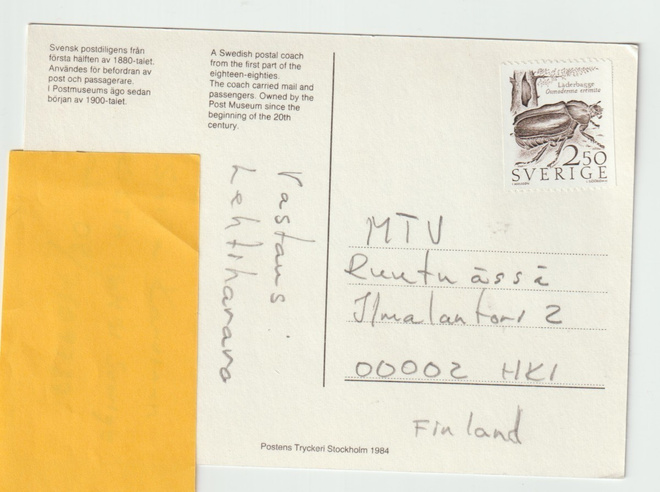 Svensk postdiligens från
första hälften av 1880-talet.
Användes för befordran av
post och passagerare.
I Postmuseums ägo sedan
början av 1900-talet.
A Swedish postal coach
from the first part of the
eighteen-eighties.
The coach carried mail and
passengers. Owned by the
Post Museum since the
beginning of the 20th
century.
Vastaus:
Lehtiharava
Läderbagge
Osmoderma eremita
2.50
SVERIGE
MTV
Ruutuässä
Ilmalantori 2
00002 HKI
Finland
Postens Tryckeri Stockholm 1984